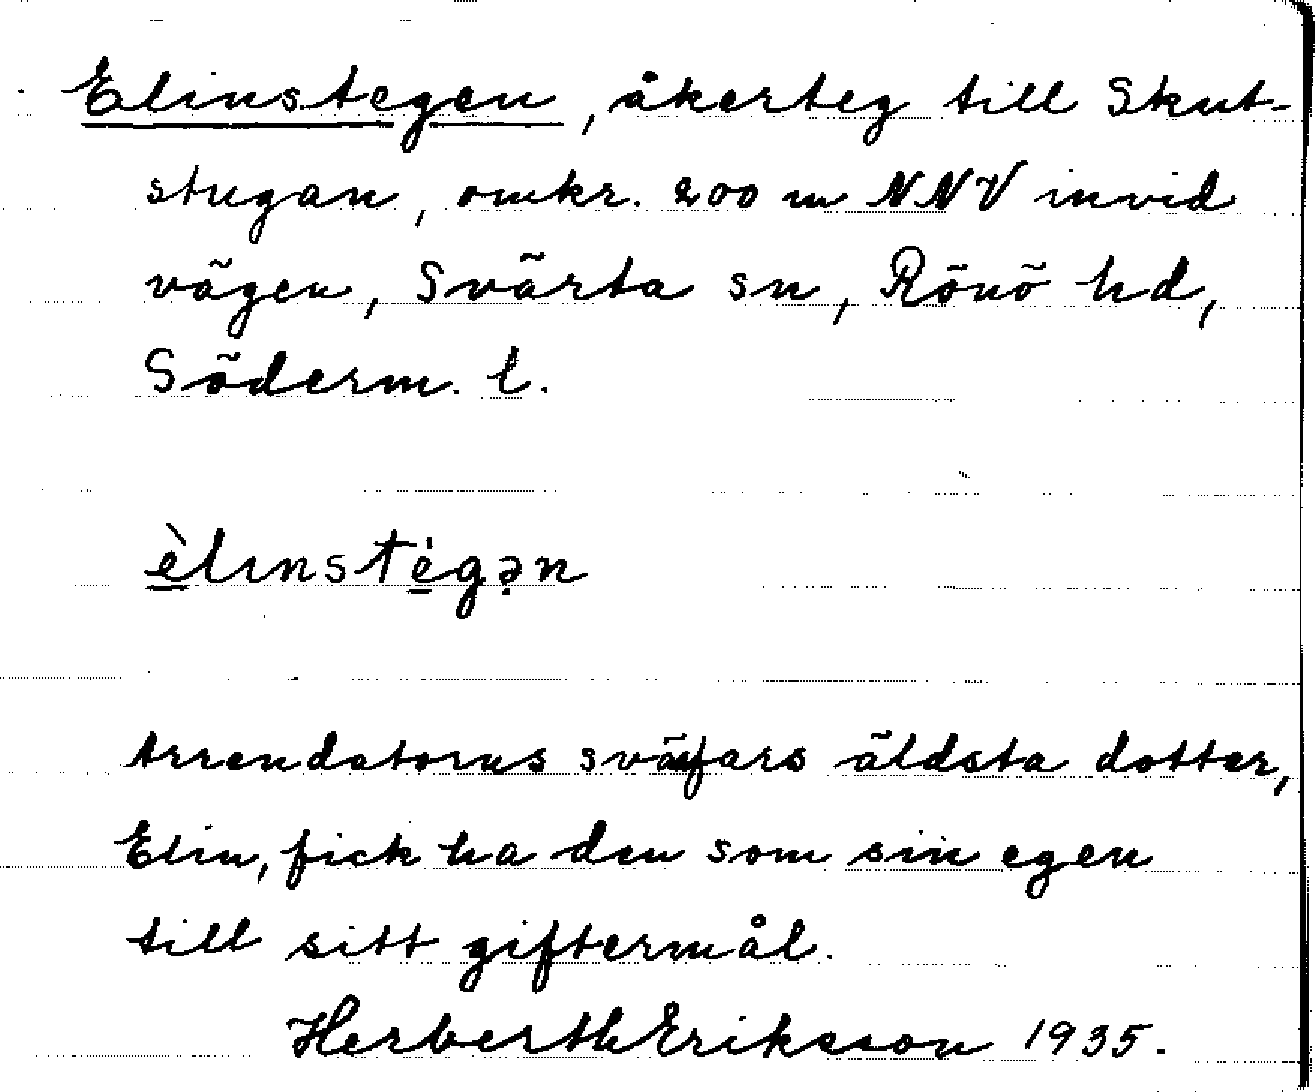 Elinstegen, åkerteg till Skut-
stugan, omkr. 200 m NNV invid
vägen, Svärta sn, Rönö hd,
Söderm. l.
è̲linsté̲gə̣n
Arrendatorns svärfars äldsta dotter,
Elin, fick ha den som sin egen
till sitt giftermål.
Herberth Eriksson 1935.